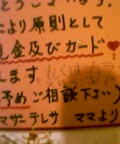 とうございます。
により原則として
金及びカード
します。
予めご相談下さい)
マザーテレサ ママより